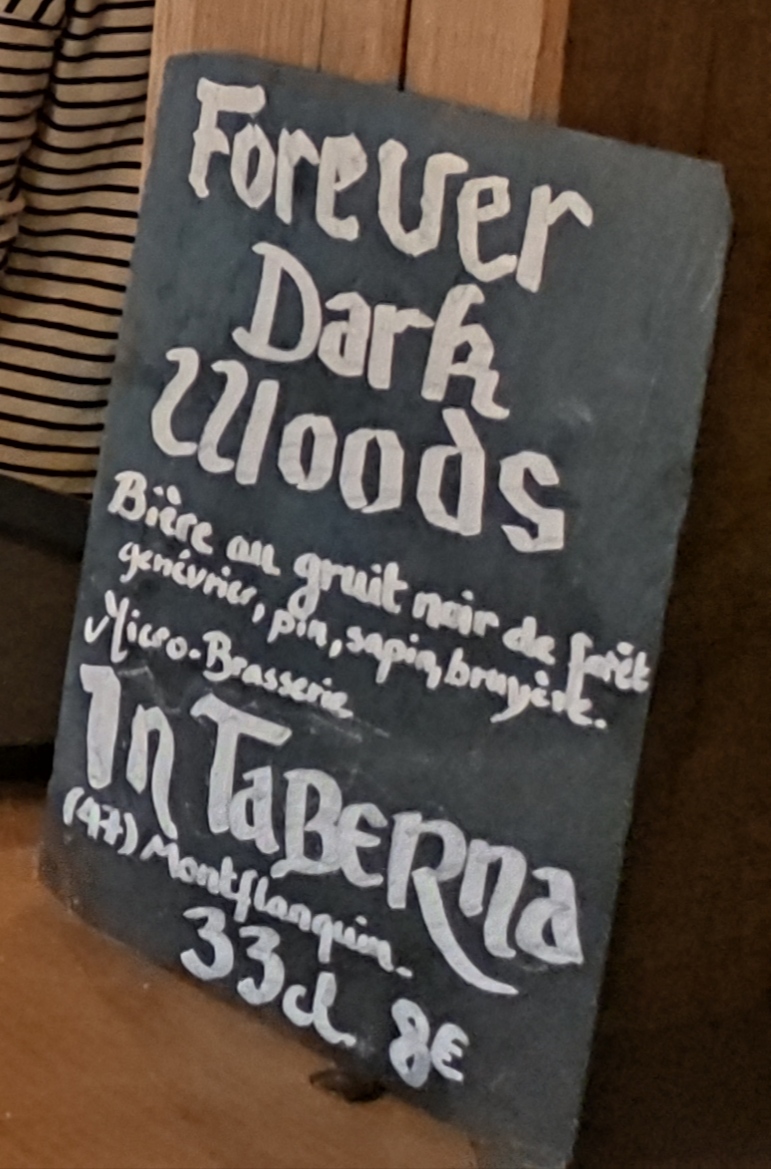 Forever
Dark
Woods
Bière au gruit noir de forêt
genévrier, pin, sapin, bruyère.
Micro-Brasserie
In TaBERna
(47) Montflanquin.
33cl 8€